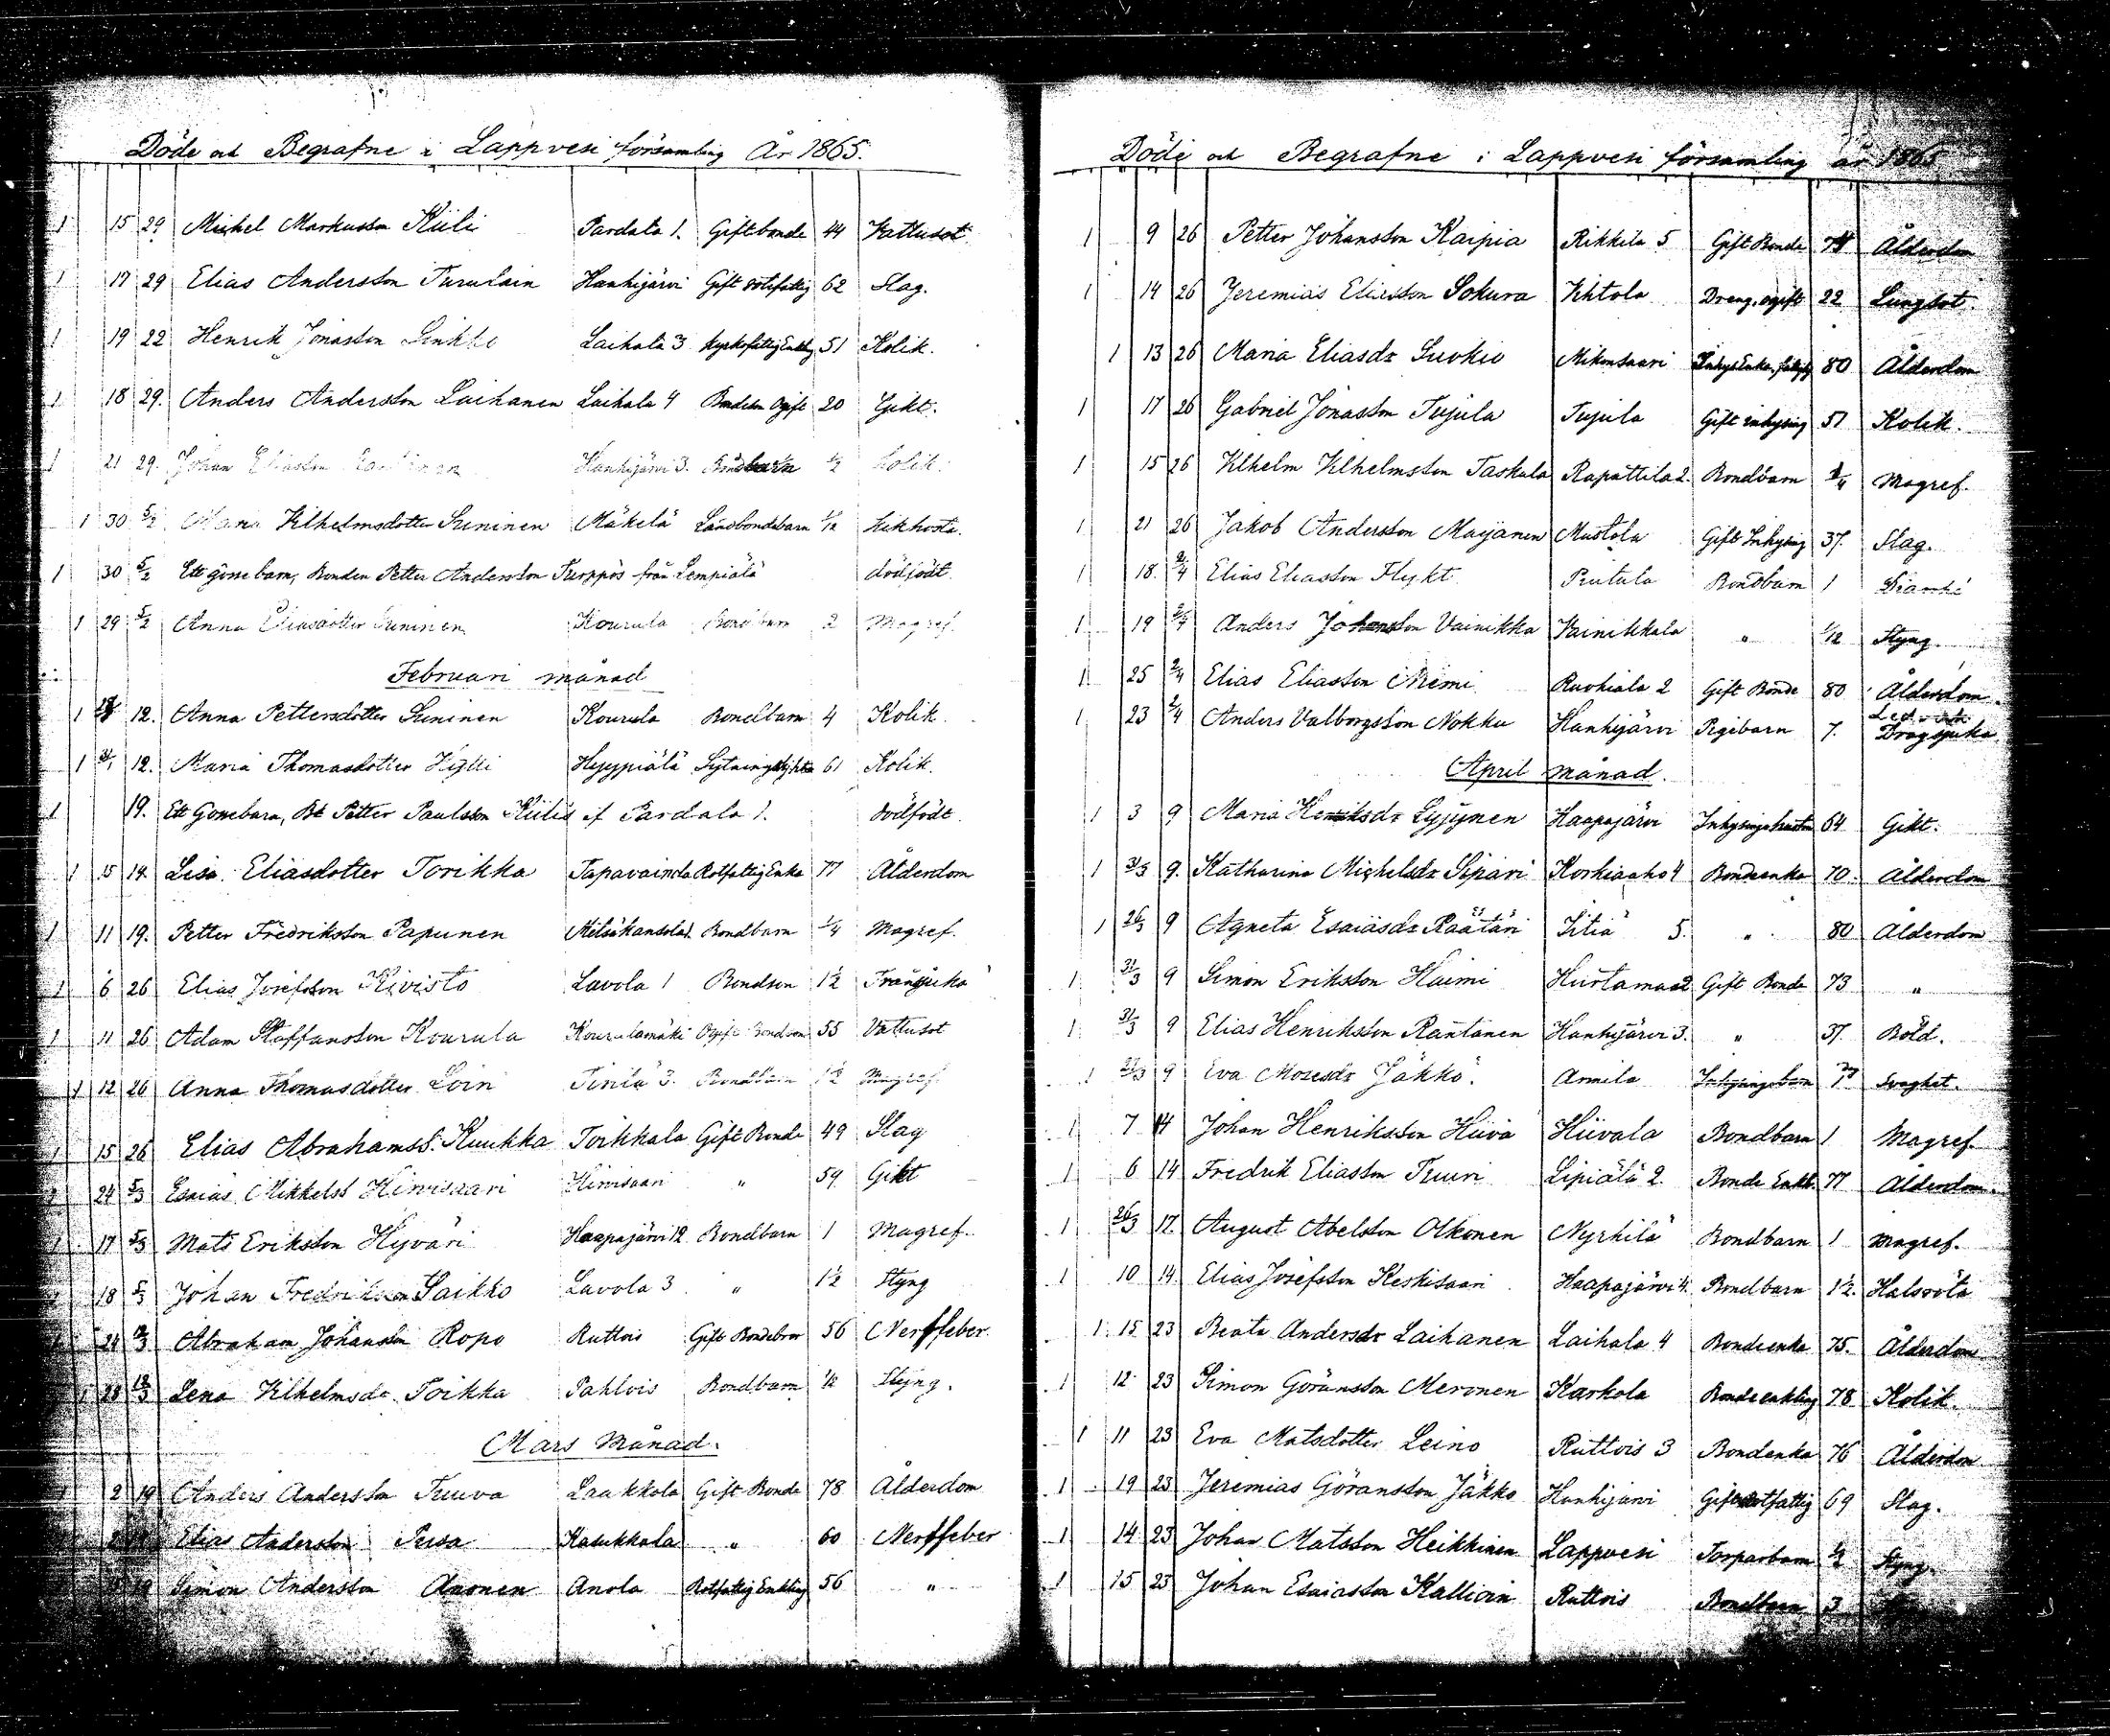 Döde och Begrafne i Lappvesi församling År 1865.
1 15 29 Michel Markusson Kiili Pardala 1. Gift bonde 44 Vattusot
1 17 29 Elias Andersson Turulain Hanhijärvi Gift rotefattig 62 Slag.
1 19 22 Henrik Jonasson Sinkko Laihala 3 51 Kolik.
1 18 29. Anders Andersson Laihanen Laihala 4 Bondson Ogift 20 Gikt.
1 21 29. Johan Eliasson Hanhijärvi 3. Bondbarn 1/2 Kolik.
1 30 5/2 Maria Vilhelmsdotter Suninen Mäkelä Landbondebarn Kikhosta.
1 30 5/2 Ett gossebarn, Bonden Petter Andersson Purppos från Lempiälä dödfödt
1 29 5/2 Anna Eliasdotter Suninen Kourula Bondbarn 2 Magref.
Februari månad
1 12. Anna Pettersdotter Suninen Kourula Bondbarn 4 Kolik.
1 31/1 12. Maria Thomasdotter Hyypiälä 61 Kolik.
1 19. Ett Gossebarn, Bd Petter Paulsson Kiilis if Pardala 1. dödfödt
1 5 19. Lisa Eliasdotter Torikka Tapavainola Rotfattig Enka 77 Ålderdom
1 11 19. Petter Fredriksson Papunen Bondbarn 1/4 Magref.
1 6 26 Elias Josefsson Kivistö Lavola 1 Bondson 1 1/2 Trånsjuka
1 11 26 Adam Staffansson Kourula Kourulamäki Ogift Bondson 55 Vattusot
1 12 26 Anna Thomasdotter Loin 3. Bondbarn 1 1/2 Magref.
1 15 26 Elias Abrahamss. Kuukka Toikkala Gift Bonde 49 Slag
1 24 5/3 Esaias Mikkelss Hirvisaari Hirvisaari " 59 Gikt
1 17 5/3 Mats Eriksson Hyväri Haapajärvi 12 Bondbarn 1 Magref.
1 18 5/3 Johan Fredriksson Saikko Lavola 3 " 1 1/2 Styng
1 24 12/3 Abraham Johansson Ropo Ruttois Gift Bondebror 56 Nerffeber
1 28 12/3 Lena Vilhelmsdr Toikka Pahlois Bondbarn Styng.
Mars Månad.
1 2 19 Anders Andersson Tuuva Laukkola Gift Bonde 78 Ålderdom
Elias Andersson Pusa Kasukkala " 60 Nerffeber
19 Simon Andersson Anonen Anola Rotfattig Enkling 56 "
Döde och Begrafne i Lappvesi församling år 1865
1 9 26 Petter Johansson Kaipia Rikkilä 5 Gift Bonde Ålderdom
1 14 26 Jeremias Eliasson Sokura Vihtola Dreng, ogift 22 Lungsot.
1 13 26 Maria Eliasdr Suokio Mikonsaari 80 Ålderdom
1 17 26 Gabriel Jonasson Tujula Tujula Gift inhysing 51 Kolik.
1 15 26 Vilhelm Vilhelmsson Taskula Rapattila 2. Bondbarn Magref.
1 21 26 Jakob Andersson Marjanen Mustola Gift Inhysing 37. Slag.
1 18. 2/4 Elias Eliasson Flykt Bondbarn 1
1 19 2/4 Anders Johansson Vainikka Vainikkala " 1/12 Styng.
1 25 2/4 Elias Eliasson Niemi Ruohiala 2 Gift Bonde 80 Ålderdom.
1 23 2/4 Anders Valborgsson Nokka Hanhijärvi Pigebarn 7. Dragsjuka
April månad.
1 3 9 Maria Henriksdr Lyijynen Haapajärvi Inhysingshustru 64 Gikt.
1 31/3 9. Katharina Michelsdr Sipari Korkiaaho 4 Bondeenka 70. Ålderdom
1 26/3 9 Agneta Esaiäsdr Räätäri 5. " 80 Ålderdom
1 31/3 9 Simon Eriksson Haimi Hurtamaa 2 Gift Bonde 73 "
1 31/3 9 Elias Henriksson Rantanen Hanhijärvi 3. " 37. Böld.
1 9 Eva Mosesdr Jäkkö. Armila Inhysingsbarn Svaghet.
1 7 14 Johan Henriksson Hiiva Hiivala Bondbarn 1 Magref.
1 6 14 Fredrik Eliasson Tuuri Lipiälä 2. Bonde Enkl. 77 Ålderdom.
1 26/3 17. August Abelsson Olkonen Nyrhilä Bondbarn 1 magref.
1 10 14 Elias Josefsson Keskisaari Haapajärvi 4. Bondbarn 1 1/2. Halsröta
1 15 23 Beata Andersdr Laihanen Laihala 4 Bondeenka 75. Ålderdom
1 12 23 Simon Göransson Meronen Karhola Bondeenkling 78 Kolik.
1 11 23 Eva Matsdotter Leino Ruttois 3 Bondenka 76 Ålderdom
1 19 23 Jeremias Göransson Jäkko Hanhijärvi Gift Rotfattig 69 Slag.
1 14 23 Johan Matsson Heikkinen Lappvesi Torparbarn 1/2 Styng.
1 15 23 Johan Esaiasson Kallioin Ruttois Bondbarn 3